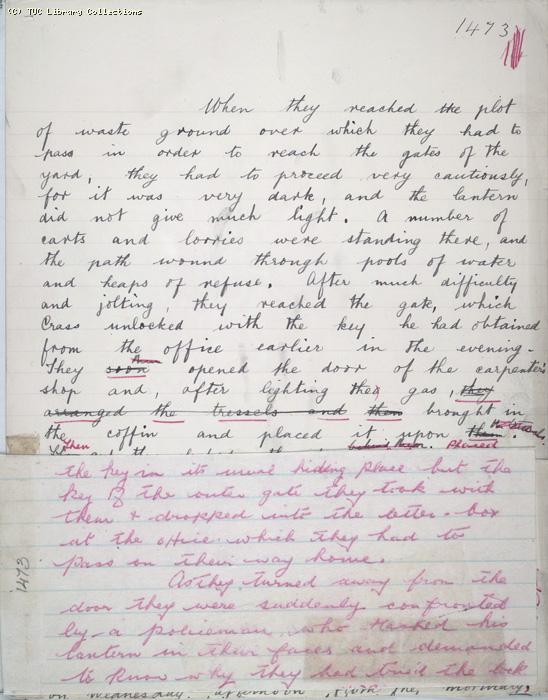 (C) TUC Library Collections
1473
When they reached the plot
of waste ground over which they had to
pass in order to reach the gates of the
yard, they had to proceed very cautiously,
for it was very dark, and the lantern
did not give much light. A number of
carts and lorries were standing there, and
the path wound through pools of water
and heaps of refuse. After much difficulty
and jolting, they reached the gate, which
Crass unlocked with the key he had obtained
from the office earlier in the evening.
They soon opened the door of the carpenter's
shop and, after lighting the gas, they
arranged the tressels and then brought in
the coffin and placed it upon them.
Then placed
the key in its usual hiding place but the
key of the outer gate they took with
them & dropped into the letter-box
at the office which they had to
pass on their way home.
As they turned away from the
door they were suddenly confronted
by a policeman who flashed his
lantern in their faces and demanded
to know why they had tried the lock
1473
on Wednesday afternoon